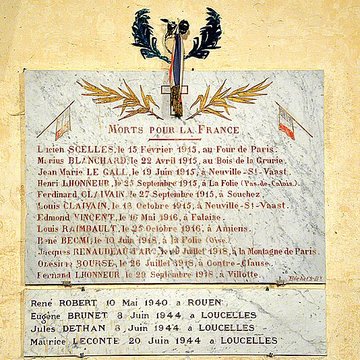 MORTS POUR LA FRANCE
Lucien SCELLES, le 15 Février 1915, au Four de Paris.
Marius BLANCHARD, le 22 Avril 1915, au Bois de la Grurie.
Jean Marie LE GALL, le 19 Juin 1915, à Neuville-St-Vaast.
Henri LHONNEUR, le 25 Septembre 1915, à La Folie (Pas-de-Calais).
Ferdinand CLAIVAIN, le 27 Septembre 1915, à Souchez.
Louis CLAIVAIN, le 13 Octobre 1915, à Neuville-St-Vaast.
Edmond VINCENT, le 16 Mai 1916, à Falaise.
Louis RAIMBAULT, le 25 Octobre 1916, à Amiens.
René BECMI, le 10 Juin 1918, à la Folie (Oise).
Jacques RENAUDEAU d'ARC, le 9 Juillet 1918, à la Montagne de Paris.
BOURSE, le 26 Juillet 1918, à
Fernand LHONNEUR, le 29 Septembre 1918, à Villotte.
René ROBERT 10 Mai 1940 a ROUEN
Eugène BRUNET 8 Juin 1944 a LOUCELLES
Jules DETHAN 8 Juin 1944 a LOUCELLES
Maurice LECONTE 20 Juin 1944 a LOUCELLES